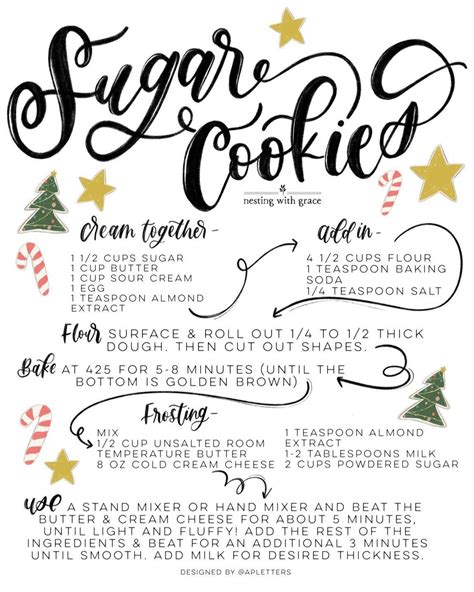 Sugar
Cookies
nesting with grace
Cream together-
1 1/2 CUPS SUGAR
1 CUP BUTTER
1 CUP SOUR CREAM
1 EGG
1 TEASPOON ALMOND
EXTRACT
add in-
4 1/2 CUPS FLOUR
1 TEASPOON BAKING
SODA
1/4 TEASPOON SALT
Flour SURFACE & ROLL OUT 1/4 TO 1/2 THICK
DOUGH. THEN CUT OUT SHAPES.
Bake AT 425 FOR 5-8 MINUTES (UNTIL THE
BOTTOM IS GOLDEN BROWN)
Frosting-
MIX
1/2 CUP UNSALTED ROOM
TEMPERATURE BUTTER
8 OZ COLD CREAM CHEESE
1 TEASPOON ALMOND
EXTRACT
1-2 TABLESPOONS MILK
2 CUPS POWDERED SUGAR
use A STAND MIXER OR HAND MIXER AND BEAT THE
BUTTER & CREAM CHEESE FOR ABOUT 5 MINUTES,
UNTIL LIGHT AND FLUFFY! ADD THE REST OF THE
INGREDIENTS & BEAT FOR AN ADDITIONAL 3 MINUTES
UNTIL SMOOTH. ADD MILK FOR DESIRED THICKNESS.
DESIGNED BY @APLETTERS